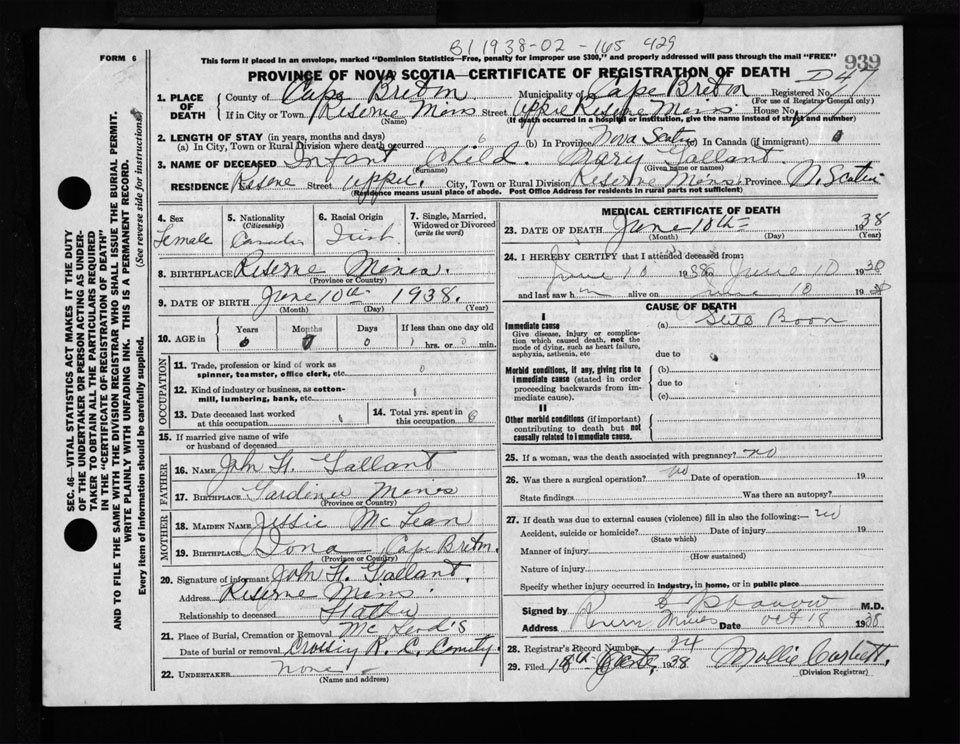 B1 1938-02-165 429
FORM 6
This form if placed in an envelope, marked "Dominion Statistics—Free, penalty for improper use $300," and properly addressed will pass through the mail "FREE"
939
PROVINCE OF NOVA SCOTIA—CERTIFICATE OF REGISTRATION OF DEATH
D47
1. PLACE OF DEATH
County of Cape Breton Municipality of Cape Breton Registered No.
(For use of Registrar General only)
If in City or Town Reserve Mines Street Upper Reserve Mines House No.
(Name) (If death occurred in a hospital or institution, give the name instead of street and number)
2. LENGTH OF STAY (in years, months and days)
(a) In City, Town or Rural Division where death occurred (b) In Province Nova Scotia (c) In Canada (if immigrant) 0
3. NAME OF DECEASED Infant Child. Mary Gallant.
(Surname) (Given name or names)
RESIDENCE Reserve Street Upper City, Town or Rural Division Reserve Mines Province N. Scotia
(Residence means usual place of abode. Post Office Address for residents in rural parts not sufficient)
4. Sex Female
5. Nationality (Citizenship) Canadian
6. Racial Origin Irish
7. Single, Married, Widowed or Divorced (write the word)
8. BIRTHPLACE Reserve Mines.
(Province or Country)
9. DATE OF BIRTH June 10th 1938.
(Month) (Day) (Year)
10. AGE in Years Months Days If less than one day old
0 0 0 hrs. or 0 min.
OCCUPATION
11. Trade, profession or kind of work as spinner, teamster, office clerk, etc. 0
12. Kind of industry or business, as cotton-mill, lumbering, bank, etc.
13. Date deceased last worked at this occupation
14. Total yrs. spent in this occupation
15. If married give name of wife or husband of deceased
FATHER
16. NAME John H. Gallant
17. BIRTHPLACE Gardiner Mines
(Province or Country)
MOTHER
18. MAIDEN NAME Jessie McLean
19. BIRTHPLACE Iona Cape Breton.
(Province or Country)
20. Signature of informant John H. Gallant.
Address Reserve Mines.
Relationship to deceased Father
21. Place of Burial, Cremation or Removal McLeod's
Date of burial or removal Crossing R. C. Cemetry.
22. UNDERTAKER None
(Name and address)
MEDICAL CERTIFICATE OF DEATH
23. DATE OF DEATH June 10th 1938
(Month) (Day) (Year)
24. I HEREBY CERTIFY that I attended deceased from:
June 10 1938 to June 10 1938
and last saw h alive on June 10 1938
CAUSE OF DEATH
I
Immediate cause (a) Still Born
Give disease, injury or complication which caused death, not the mode of dying, such as heart failure, asphyxia, asthenia, etc
due to
Morbid conditions, if any, giving rise to immediate cause (stated in order proceeding backwards from immediate cause).
(b)
due to
(c)
II
Other morbid conditions (if important) contributing to death but not causally related to immediate cause.
25. If a woman, was the death associated with pregnancy? no
26. Was there a surgical operation? no Date of operation 19
State findings Was there an autopsy?
27. If death was due to external causes (violence) fill in also the following:— no
Accident, suicide or homicide? Date of injury 19
(State which)
Manner of injury
(How sustained)
Nature of injury
Specify whether injury occurred in industry, in home, or in public place
Signed by M.D.
Address Reserve Mines Date Oct 18 1938
28. Registrar's Record Number 94
29. Filed 18th 1938 Mollie Corbett.
(Division Registrar)
SEC. 46—VITAL STATISTICS ACT MAKES IT THE DUTY
OF THE UNDERTAKER OR PERSON ACTING AS UNDERTAKER TO OBTAIN ALL THE PARTICULARS REQUIRED
IN THE "CERTIFICATE OF REGISTRATION OF DEATH"
AND TO FILE THE SAME WITH THE DIVISION REGISTRAR WHO SHALL ISSUE THE BURIAL PERMIT.
WRITE PLAINLY WITH UNFADING INK. THIS IS A PERMANENT RECORD.
Every item of information should be carefully supplied. (See reverse side for instructions)